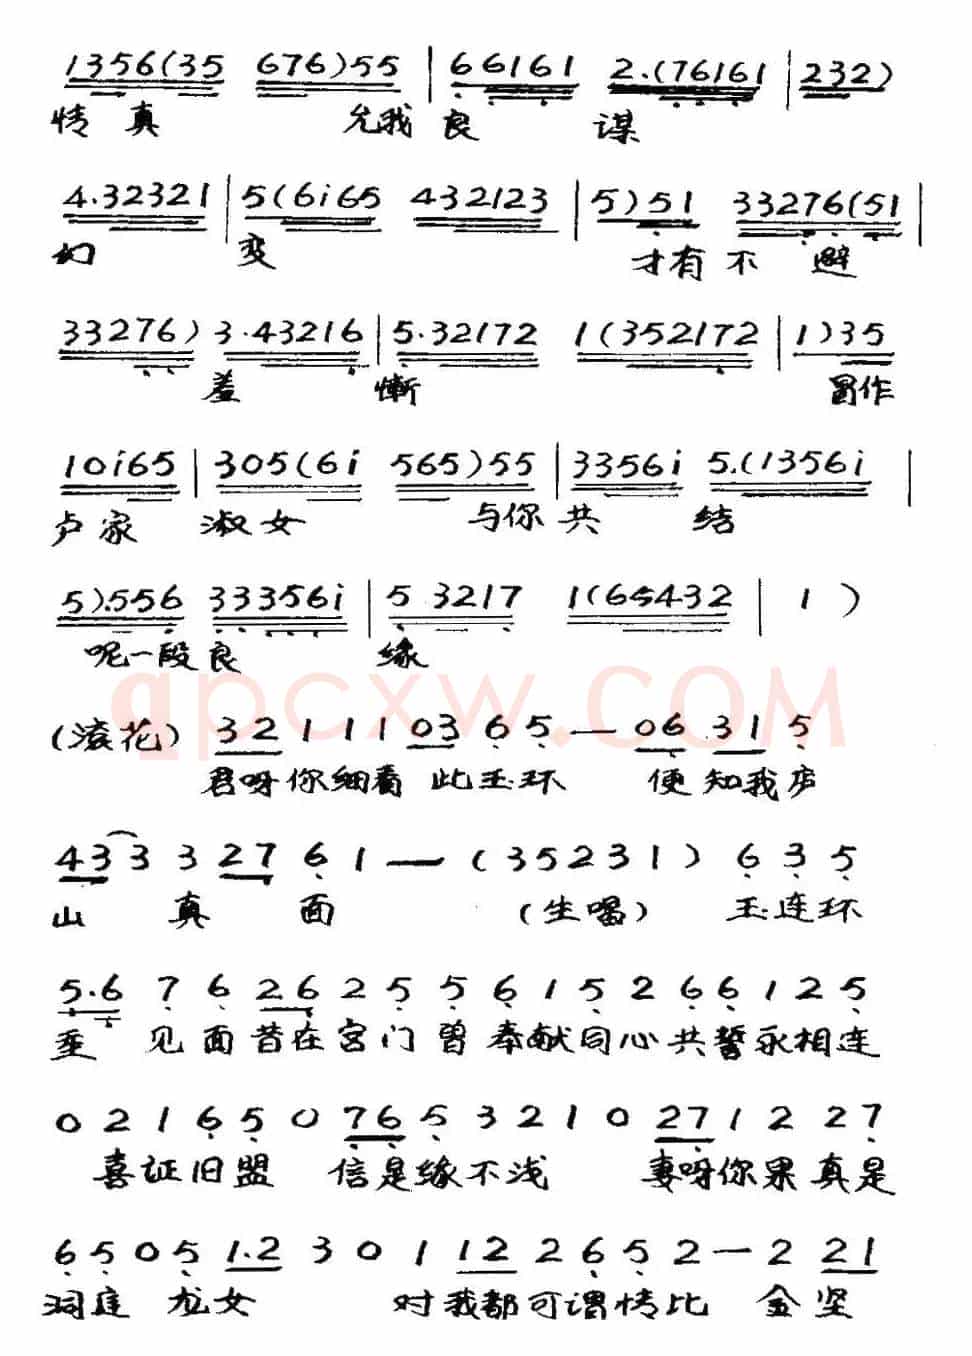 1356(35 676)55 | 66161 2.(76161 | 232)
情真 允我良 谋
4.32321 | 5(6i65 432123 | 5)51 33276(51 |
幻 变 才有不 避
33276) 3.43216 | 5.32172 1(352172 | 1)35
羞 惭 冒作
10i65 | 305(6i 565)55 | 3356i 5.(1356i |
卢家 淑女 与你共 结
5).556 33356i | 5 3217 1(65432 | 1 )
呢一段良 缘
qpcxw.COM
(滚花) 32 1 1 1 03 6 5 — 06 31 5
君呀你细看 此玉环 便知我庐
43 3 3 27 6 1 — (35231) 6 3 5
山 真 面 (生唱) 玉连环
5.6 7 6 26 2 5 5 6 1 5 2 6 6 1 2 5
重 见面昔在宫门曾奉献同心共誓永相连
0 2 1 6 5 0 76 5 3 2 1 0 27 1 2 2 7
喜证旧盟 信是缘不浅 妻呀你果真是
6 5 0 5 1.2 3 0 1 12 2 6 5 2 — 2 21
洞庭 龙女 对我都可谓情比 金坚